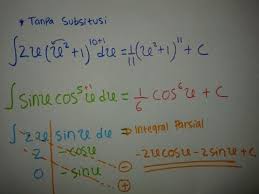 * Tanpa Subsitusi
∫2u(u²+1)^10+1 du = 1/11 (u²+1)^11 + C
∫sinu cos^5+1 u du = 1/6 cos^6 u + C
∫2u sinu du ⇒ Integral Parsial
2 -cosu - -2ucosu - 2sinu + C
0 -sinu +